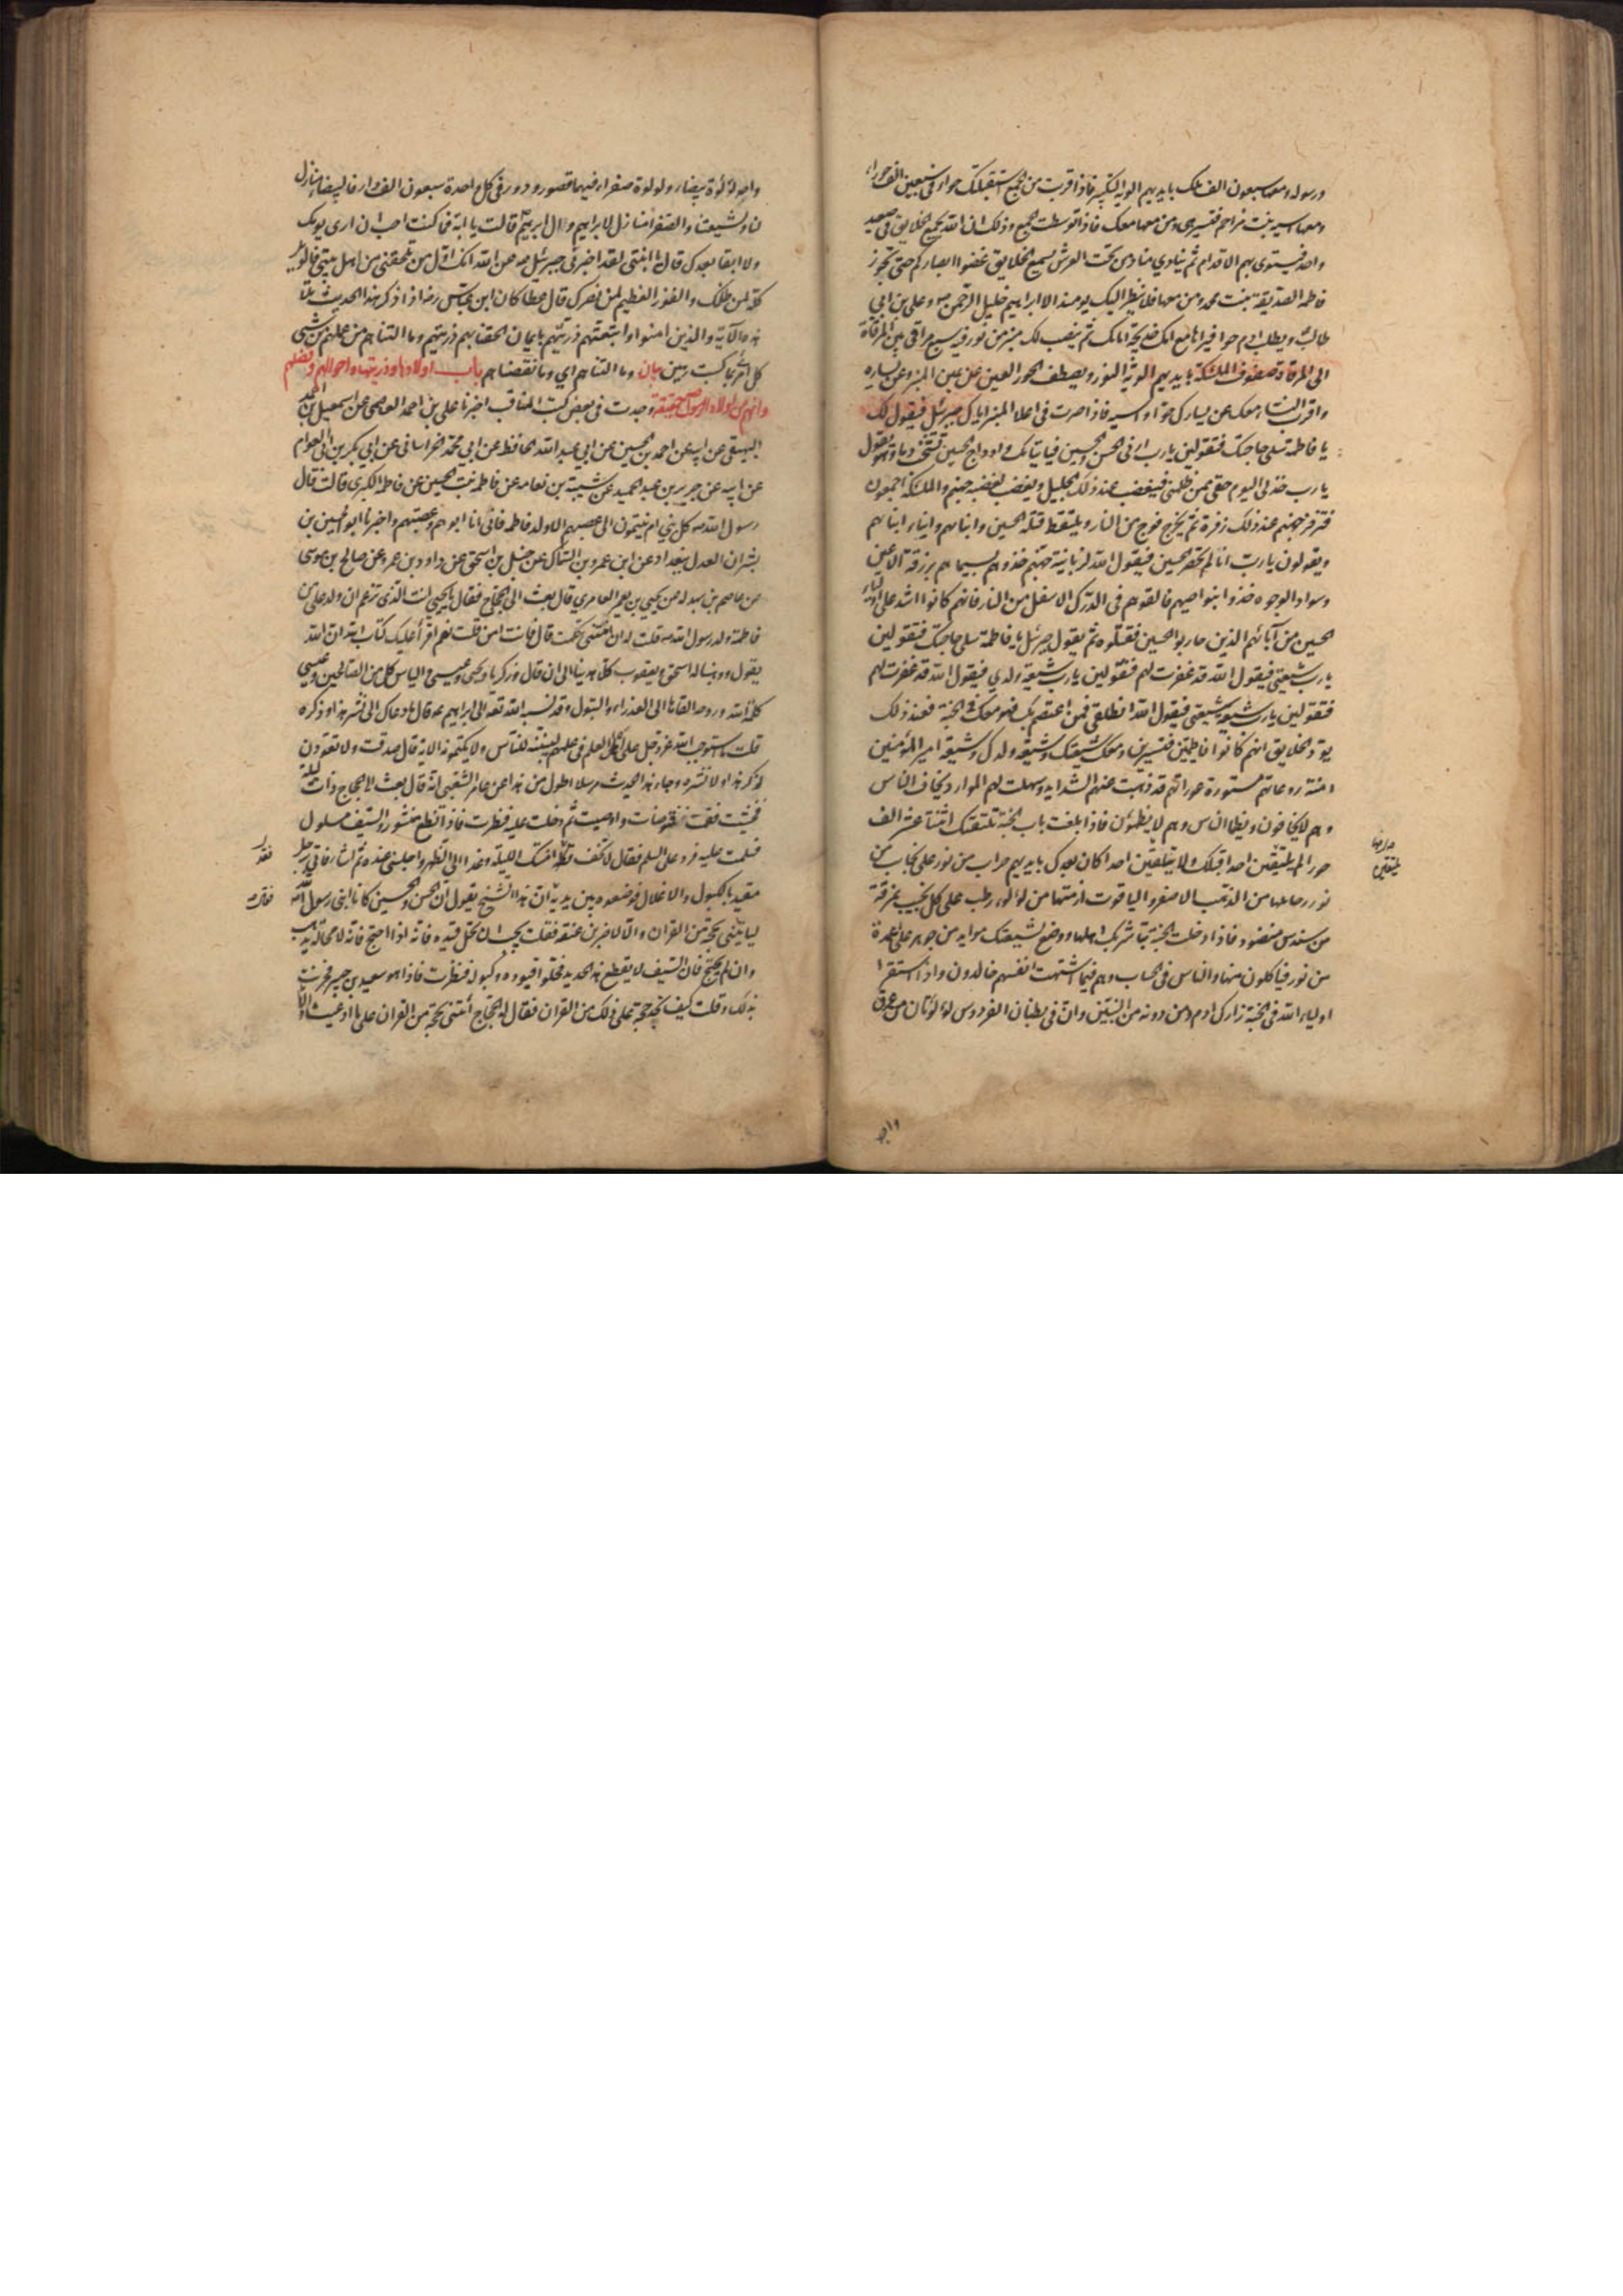 ورسوله ومعها سبعون الف ملك بايديهم الوية التكبير فاذا قربت من الجمع استقبلتك حواء في سبعين الف حوراء
ومعها آسية بنت مزاحم فتسير هي ومن معها معك فاذا توسطت الجمع وذلك ان الله يجمع الخلايق في صعيد
واحد فيستوى بهم الاقدام ثم ينادي منادى من تحت العرش يسمع الخلايق غضوا ابصاركم حتى تجوز
فاطمة الصديقة بنت محمد ومن معها فلا ينظر اليك يومئذ الا ابراهيم خليل الرحمن ص وعلى بن ابي
طالب ويطلب ادم حوا فيراها مع امك خديجة امامك ثم ينصب لك منبر من نور فيه سبع مراقى بين المرقاة
الى المرقاة صفوف الملئكة بايديهم الوية النور ويصطف الحور العين عن يمين المنبر وعن يساره
واقرب النساء معك عن يسارك حوا وآسيه فاذا صرت في اعلا المنبر اتاك جبرئيل فيقول لك
يا فاطمة سلى حاجتك فتقولين يارب ارنى الحسن والحسين فياتيانك واوداج الحسين تشخب دما وهو يقول
يا رب خذ لى اليوم حقى ممن ظلمنى فيغضب عند ذلك الجليل ويغضب لغضبه جهنم والملئكة اجمعون
فتزفر جهنم عند ذلك زفرة ثم يخرج فوج من النار ويلتقط قتلة الحسين وابنائهم وابناء ابنائهم
ويقولون يارب انا لم نحضر الحسين فيقول الله لزبانية جهنم خذوهم بسيماهم بزرقة الاعين
وسواد الوجوه خذوا بنواصيهم فالقوهم في الدرك الاسفل من النار فانهم كانوا اشد على اولياء
الحسين من آبائهم الذين حاربوا الحسين فقتلوه ثم يقول جبرئيل يا فاطمة سلى حاجتك فتقولين
يا رب شيعتى فيقول الله قد غفرت لهم فتقولين يارب شيعة ولدي فيقول الله قد غفرت لهم
فتقولين يارب شيعة شيعتى فيقول الله انطلقى فمن اعتصم بك فهو معك في الجنة فعند ذلك
يود الخلايق انهم كانوا فاطميين فتسيرين ومعك شيعتك وشيعة ولدك وشيعة امير المؤمنين
امنة روعاتهم مستورة عوراتهم قد ذهبت عنهم الشدايد وسهلت لهم الموارد يخاف الناس
وهم لايخافون ويظما الناس وهم لا يظمئون فاذا بلغت باب الجنة تلقتك اثنتا عشر الف
حوراء لم يلتقين احدا قبلك ولا يتلقين احدا كان بعدك بايديهم حراب من نور على نجايب من
نور رحايلها من الذهب الاصفر والياقوت ازمتها من لؤلؤ رطب على كل نجيب نمرقة
من سندس منضود فاذا دخلت الجنة تباشر بك اهلها ووضع لشيعتك موايد من جوهر على اعمدة
من نور فياكلون منها والناس في الحساب وهم فيما اشتهت انفسهم خالدون واذا استقر
اولياء الله في الجنة زارك ادم ومن دونه من النبيين وان في بطنان الفردوس لؤلؤتان من عرق
واحد لؤلؤة بيضاء ولولوة صفراء فيهما قصور ودور في كل واحدة سبعون الف دار فالبيضاء منازل
لنا ولشيعتنا والصفراء منازل لابراهيم وال ابرهيم قالت يا ابة فما كنت احب ان ارى يومك
ولا ابقا بعدك قال يا ابنتى لقد اخبرنى جبرئيل ص عن الله انك اول من تلحقنى من اهل بيتى فالويل
كله لمن ظلمك والفوز العظيم لمن نصرك قال عطا كان ابن عباس رضه اذا ذكر هذا الحديث تلا
هذه الآية والذين امنوا واتبعتهم ذريتهم بايمان الحقنا بهم ذريتهم وما التناهم من عملهم من شىء
كل امرئ بما كسب رهين بيان وما التناهم اي وما نقصناهم باب اولادها وذريتها واحوالهم وفضلهم
وانهم من اولاد الرسول ص حقيقة وجدت في بعض كتب المناقب اخبرنا على بن احمد العاصمى عن اسمعيل بن احمد
البيهقى عن ابيه عن احمد بن الحسين عن ابي عبد الله الحافظ عن ابي محمد الخراسانى عن ابي بكر بن ابى العوام
عن ابيه عن جرير بن عبد الحميد عن شيبة بن نعامه عن فاطمه بنت الحسين عن فاطمة الكبرى قالت قال
رسول الله ص كل بني ام ينتمون الى عصبتهم الا ولد فاطمه فانى انا ابوهم وعصبتهم واخبرنا ابو الحسين بن
بشران العدل ببغداد عن ابن عمرو بن السماك عن حنبل بن اسحق عن داود بن عمرو عن صالح بن موسى
عن عاصم بن بهدلة عن يحيى بن يعمر العامري قال بعث الى الحجاج فقال يا يحيى انت الذى تزعم ان ولد على من
فاطمة ولد رسول الله ص قلت له ان امنتنى تكلمت قال فانت امن قلت نعم اقرأ عليك كتاب الله ان الله
يقول ووهبنا له اسحق ويعقوب كلا هدينا الى ان قال وزكريا ويحيى وعيسى والياس كل من الصالحين وعيسى
كلمة الله وروحه القاها الى العذراء البتول وقد نسبه الله تعه الى ابراهيم ع قال ما دعاك الى نشر هذا وذكره
قلت ما استوجب الله عز وجل على اهل العلم في علمهم ليبيننه للناس ولا يكتمونه الاية قال صدقت ولا تعودن
لذكر هذا ولا نشره وجاء هذا الحديث مرسلا اطول من هذا عن عامر الشعبى انه قال بعث الى الحجاج ذات ليلة
فخشيت فقمت فتوضات واوصيت ثم دخلت عليه فنظرت فاذا نطع منشور والسيف مسلول
فسلمت عليه فرد على السلم فقال لا تخف فقد امنتك الليلة وغدا الى الظهر واجلسنى عنده ثم اشار فاتى برجل
مقيد بالكبول والاغلال فوضعوه بين يديه فقال ان هذا الشيخ يقول ان الحسن والحسين كانا ابنى رسول الله
لياتينى بحجة من القران والا لاضربن عنقه فقلت يجب ان تحل قيده فانه اذا احتج فانه لا محالة يذهب
وان لم يحتج فان السيف لا يقطع هذا الحديد فحلوا قيوده وكبوله فنظرت فاذا هو سعيد بن جبير فحزنت
بذلك وقلت كيف يجد حجة على ذلك من القران فقال له الحجاج ائتنى بحجة من القران على ما ادعيت والا